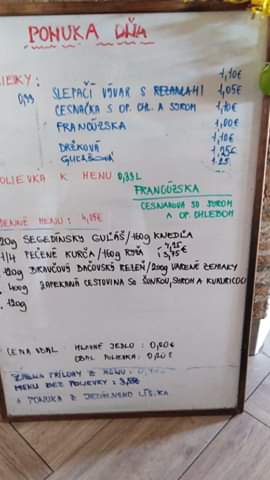 PONUKA DŇA
1,10€
0,33 SLEPAČÍ VÝVAR S REZANCAMI 1,05€
CESNAČKA S OP. CHL. A SYROM 1,10€
FRANCÚZSKA 1,00€
DRŽKOVÁ 1,10€
GULÁŠOVÁ 1,25€
1,25
POLIEVKA K MENU 0,33L
FRANCÚZSKA
CESNAKOVÁ SO SYROM
A OP. CHLEBOM
MENU : 4,05€
SEGEDÍNSKY GULÁŠ / 160g KNEDĽA
1/4 PEČENÉ KURČA / 160g RYŽA
120g BRAVČOVÝ REZEŇ / 200g VARENÉ ZEMIAKY
400g ZAPEKANÁ CESTOVINA SO ŠUNKOU, SYROM A KUKURICOU
120g
CENA OBAL HLAVNÉ JEDLO : 0,20€
OBAL POLIEVKA : 0,20€
PRÍLOHY Z MENU :
MENU BEZ POLIEVKY :
+ PONUKA Z JEDÁLNEHO LÍSTKA